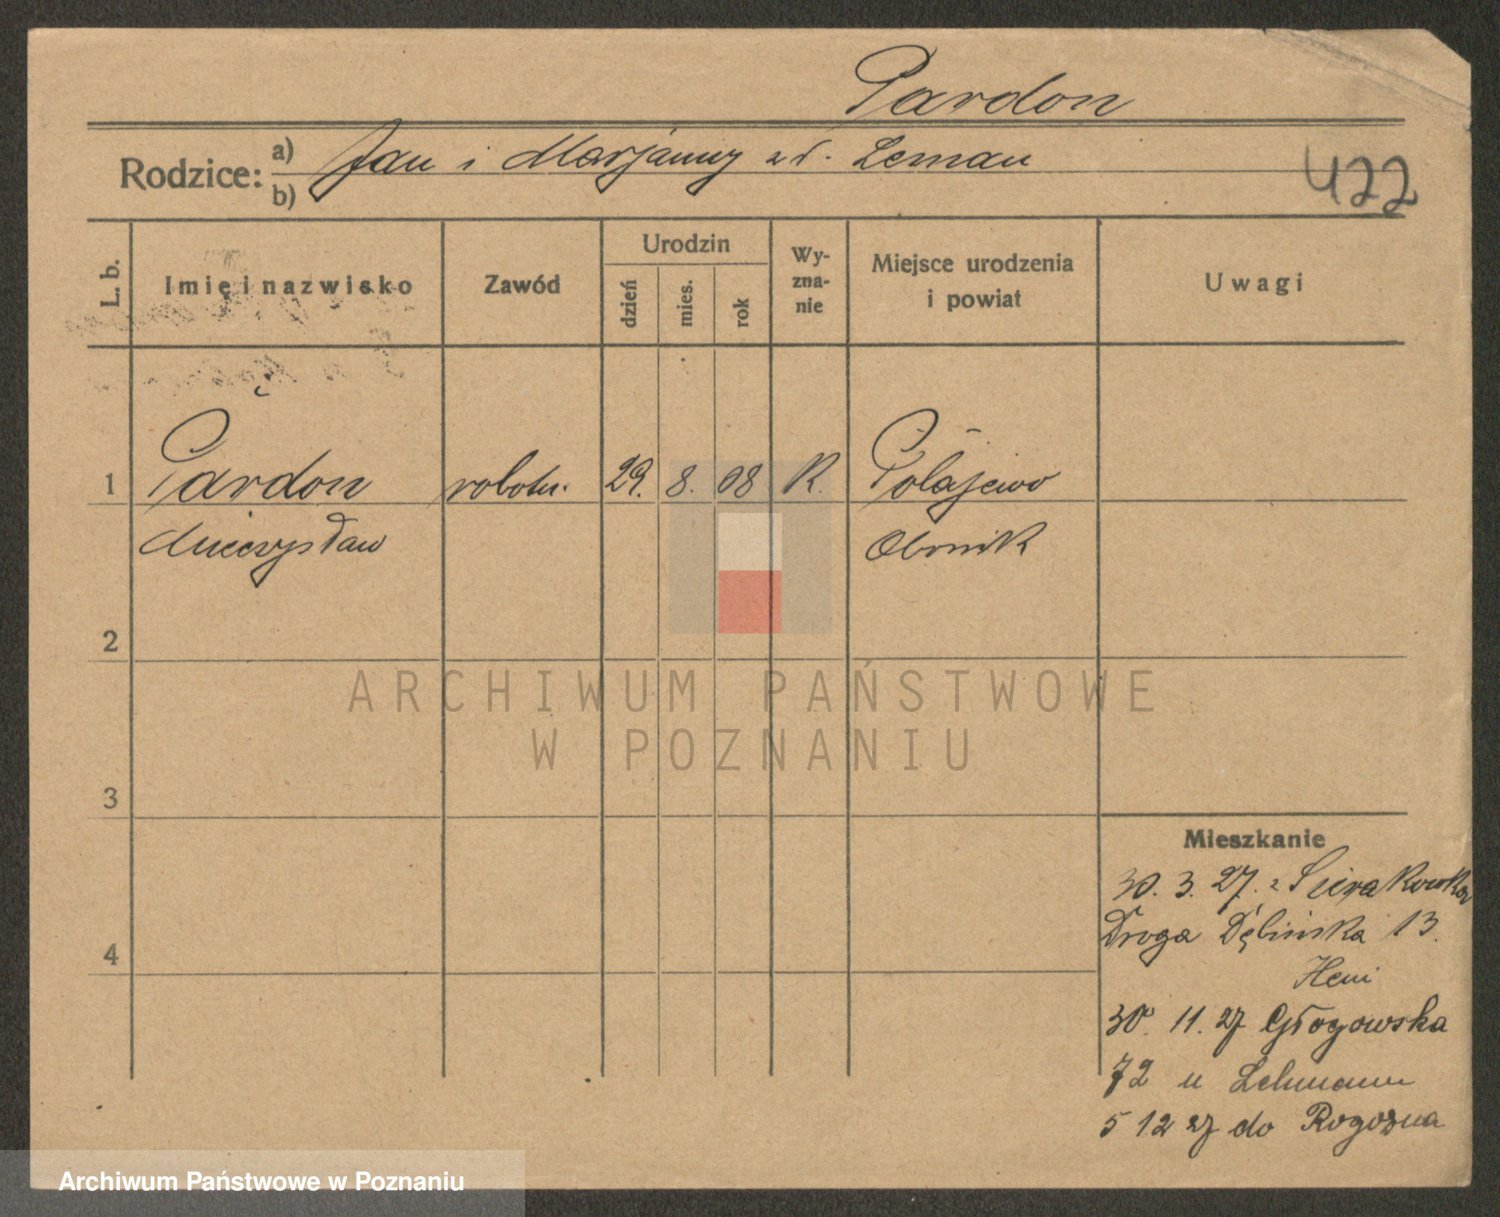 Pardon
Rodzice: a) b) Jan i Marjanny z d. Leman
422
L. b.
Imię i nazwisko
Zawód
Urodzin
dzień
mies.
rok
Wy-
zna-
nie
Miejsce urodzenia
i powiat
Uwagi
1 Pardon robotn. 29. 8. 08 R. Połajewo
Mieczysław Obornik
2
3
4
Mieszkanie
30. 3. 27. z Sierakowska
Droga Dębińska 13.
30. 11. 27 Głogowska
72 u Lehmann
5 12 27 do Rogozna
ARCHIWUM PAŃSTWOWE
W POZNANIU
Archiwum Państwowe w Poznaniu